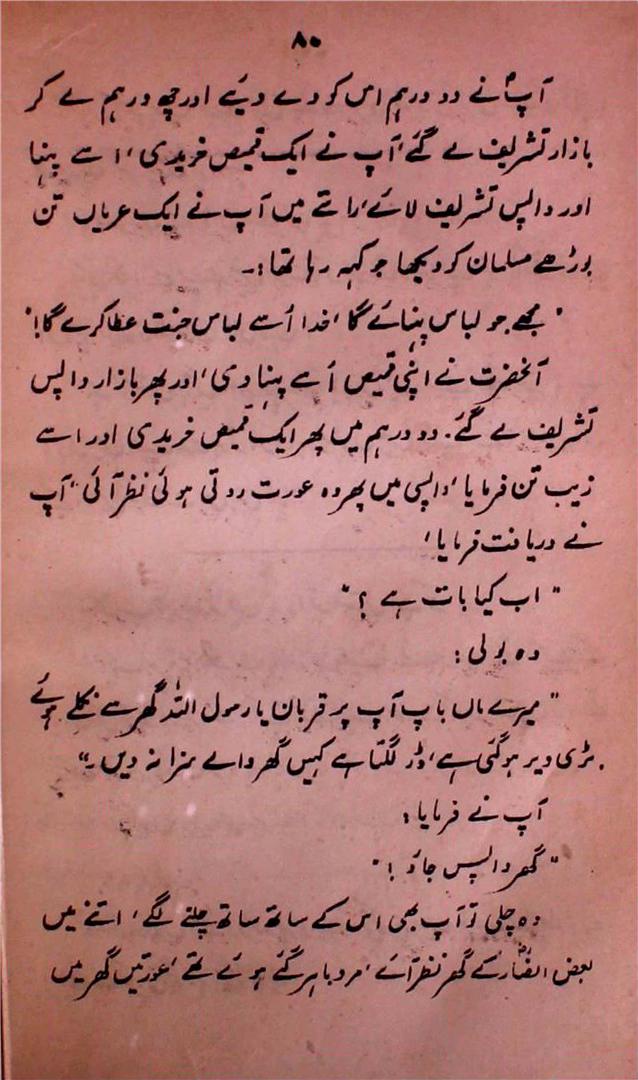 ۸۰
آپؐ نے دو درہم اس کو دے دیئے اور چھ درہم لے کر
بازار تشریف لے گئے، آپ نے ایک قمیص خریدی، اسے پہنا
اور واپس تشریف لائے، راتے میں آپ نے ایک عریاں تن
بوڑھے مسلمان کو دیکھا جو کہہ رہا تھا:۔
"مجھے جو لباس پہنائے گا، خدا اُسے لباس جنت عطا کرے گا!"
آنحضرت نے اپنی قمیص اُسے پہنا دی، اور پھر بازار واپس
تشریف لے گئے۔ دو درہم میں پھر ایک قمیص خریدی اور اسے
زیب تن فرمایا، واپسی میں پھر وہ عورت روتی ہوئی نظر آئی، آپ
نے دریافت فرمایا،
"اب کیا بات ہے ؟"
وہ بولی :
"میرے ماں باپ آپ پر قربان یا رسول اللہ گھر سے نکلے ہوئے
بڑی دیر ہو گئی ہے، ڈر لگتا ہے کہیں گھر والے سزا نہ دیں۔"
آپ نے فرمایا :
"گھر واپس جاؤ !"
وہ چلی تو آپ بھی اس کے ساتھ ساتھ چلنے لگے، اتنے میں
بعض انصارؓ کے گھر نظر آئے، مرد باہر گئے ہوئے تھے، عورتیں گھر میں